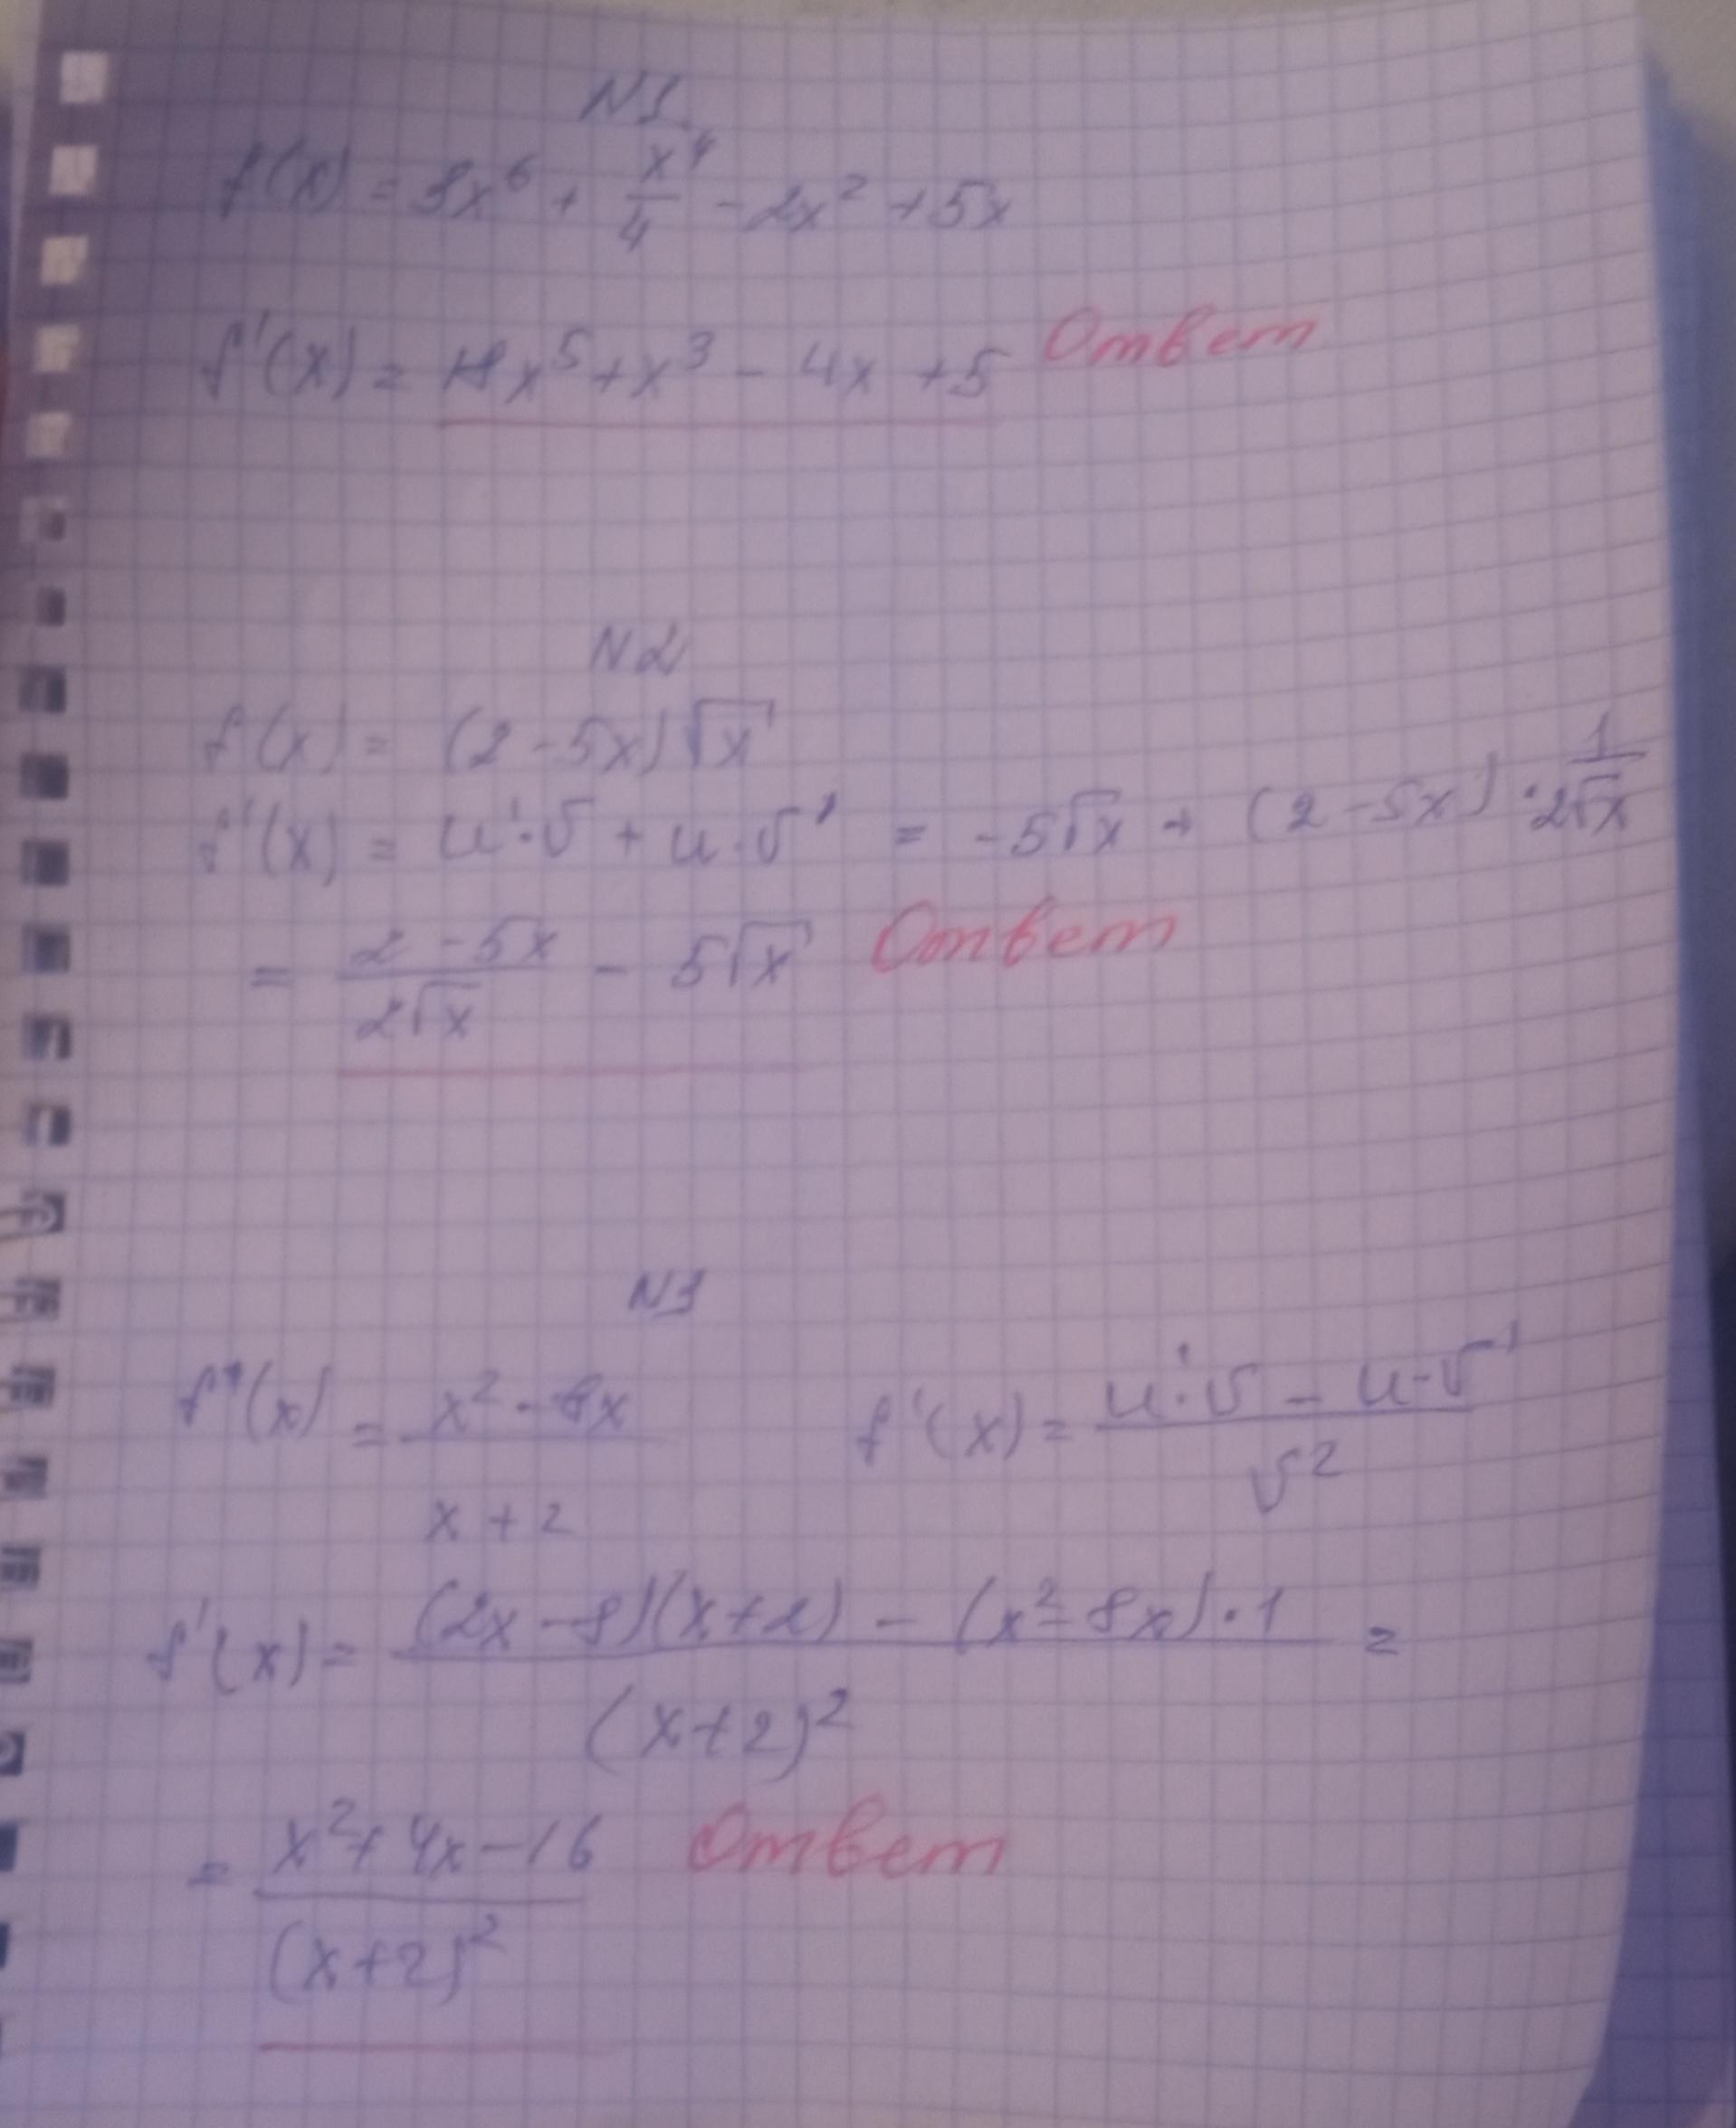 N1
f(x) = 3x⁶ + x⁴/4 - 2x² + 5x
f'(x) = 18x⁵ + x³ - 4x + 5 Ответ
N2
f(x) = (2 - 5x)√x
f'(x) = u'·v + u·v' = -5√x + (2 - 5x)·1/(2√x)
= (2 - 5x)/(2√x) - 5√x Ответ
N3
f(x) = (x² - 8x)/(x + 2) f'(x) = (u'·v - u·v')/v²
f'(x) = ((2x - 8)(x + 2) - (x² - 8x)·1)/(x + 2)² =
= (x² + 4x - 16)/(x + 2)² Ответ